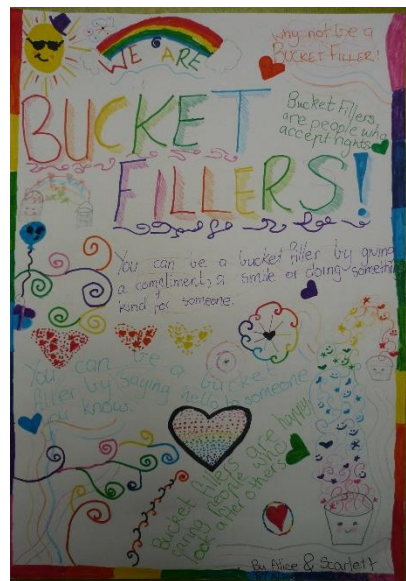 WE ARE
why not be a
BUCKET FILLER!
BUCKET
FILLERS!
Bucket Fillers
are people who
accept rights
You can be a bucket filler by giving
a compliment, a smile or doing something
kind for someone.
You can be a bucket
filler by saying hello to someone
you know.
Bucket fillers are happy
caring people who
look after others
By Alice & Scarlett